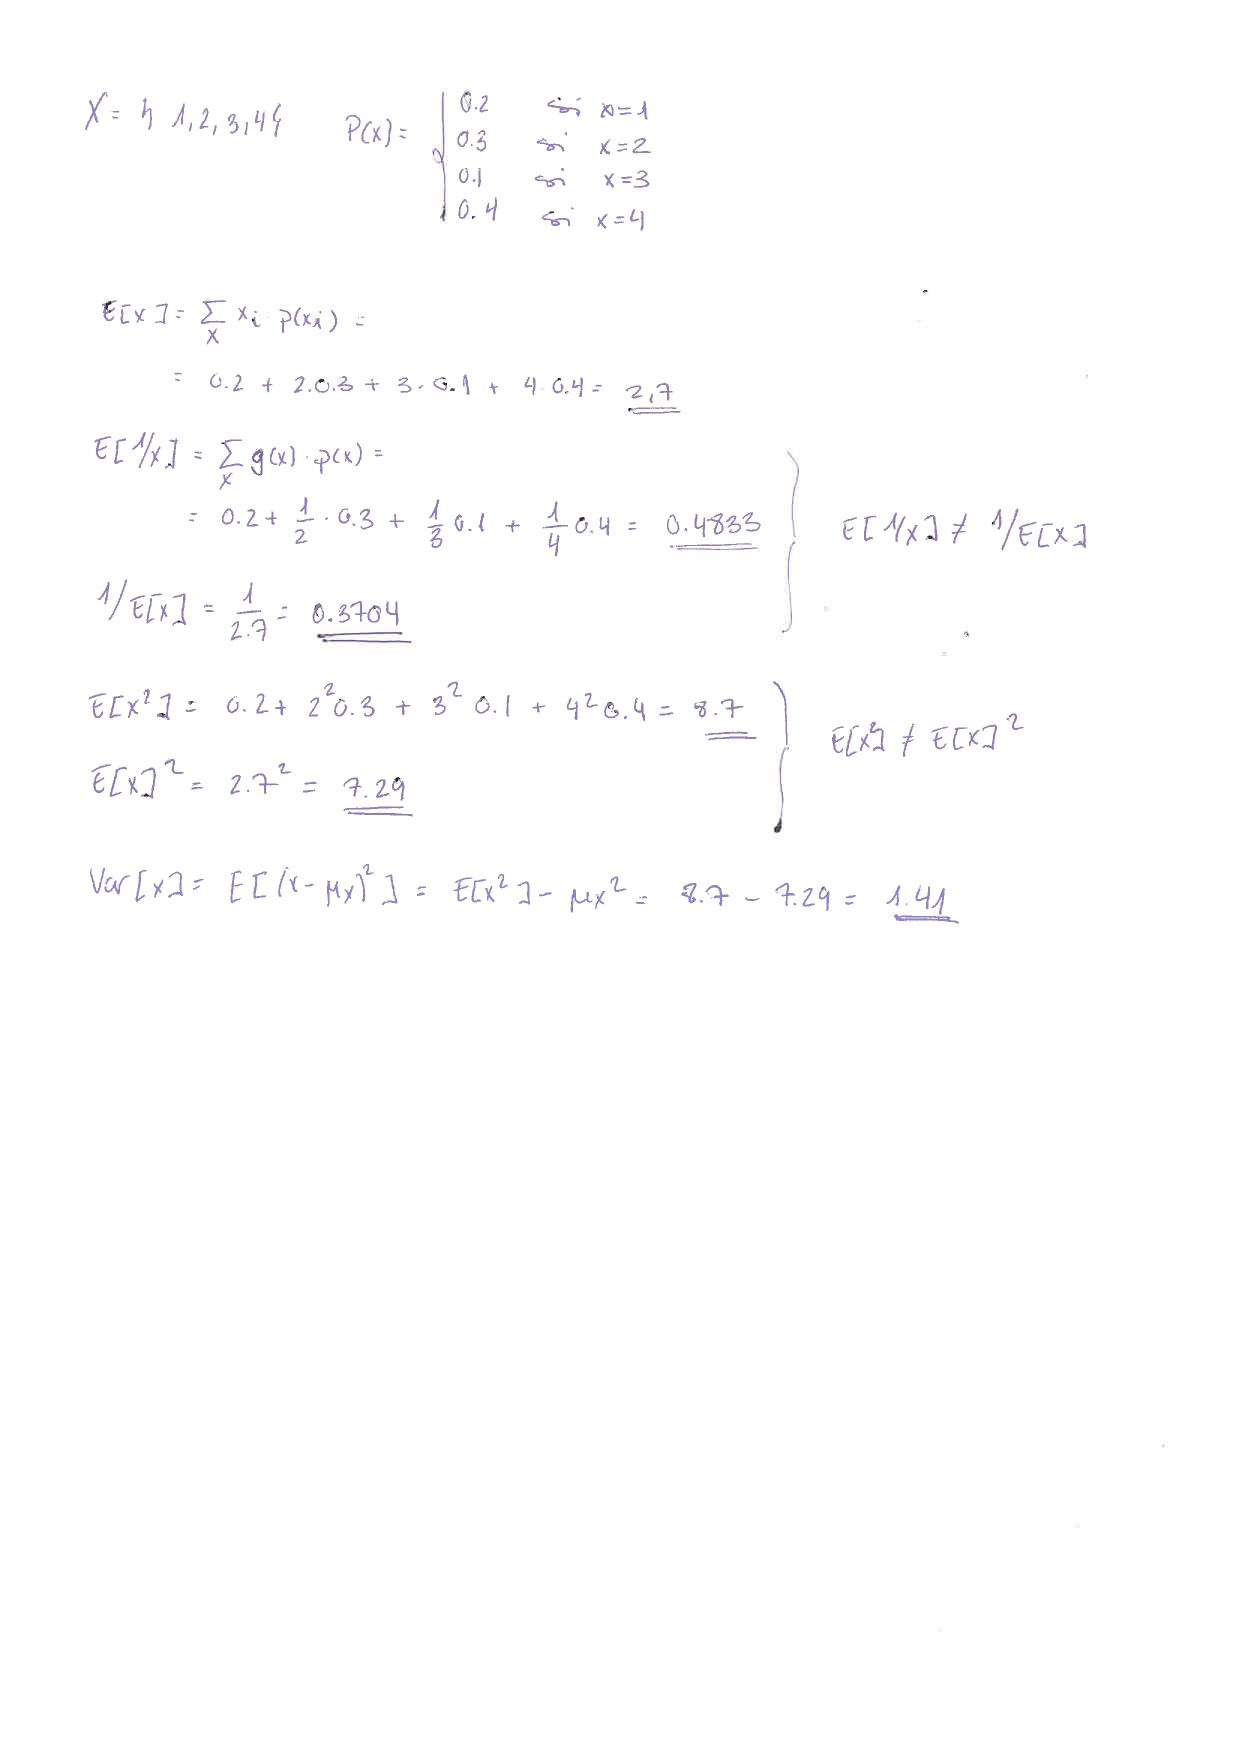 X = { 1, 2, 3, 4 } P(x) = { 0.2 si x=1
0.3 si x=2
0.1 si x=3
0.4 si x=4
E[x] = Σ_x xi p(xi) =
= 0.2 + 2·0.3 + 3·0.1 + 4·0.4 = 2,7
E[1/x] = Σ_x g(x) · p(x) =
= 0.2 + 1/2 · 0.3 + 1/3 0.1 + 1/4 0.4 = 0.4833 } E[1/x] ≠ 1/E[x]
1/E[x] = 1/2.7 = 0.3704
E[x²] = 0.2 + 2² 0.3 + 3² 0.1 + 4² 0.4 = 8.7 } E[x²] ≠ E[x]²
E[x]² = 2.7² = 7.29
Var[x] = E[(x-μx)²] = E[x²] - μx² = 8.7 - 7.29 = 1.41